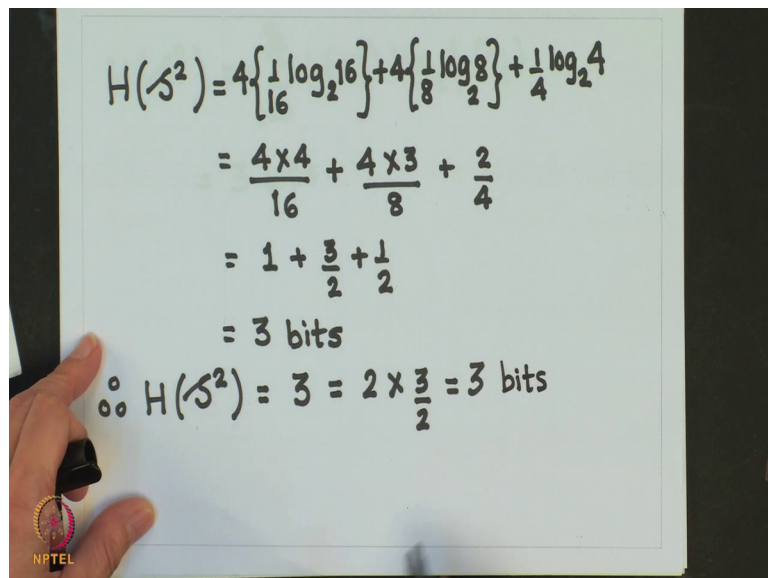 H(S²) = 4{1/16 log₂16} + 4{1/8 log₂8} + 1/4 log₂4
= 4×4/16 + 4×3/8 + 2/4
= 1 + 3/2 + 1/2
= 3 bits
∴ H(S²) = 3 = 2 × 3/2 = 3 bits
NPTEL